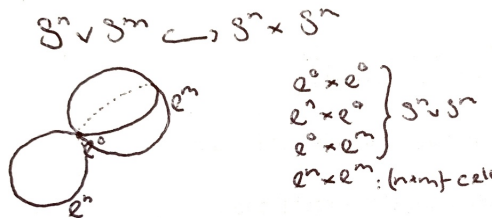 Sⁿ ∨ Sᵐ ↪ Sⁿ × Sᵐ
eᵐ
e⁰
eⁿ
e⁰ × e⁰
eⁿ × e⁰ } Sⁿ ∨ Sᵐ
e⁰ × eᵐ
eⁿ × eᵐ : (n+m)-cell